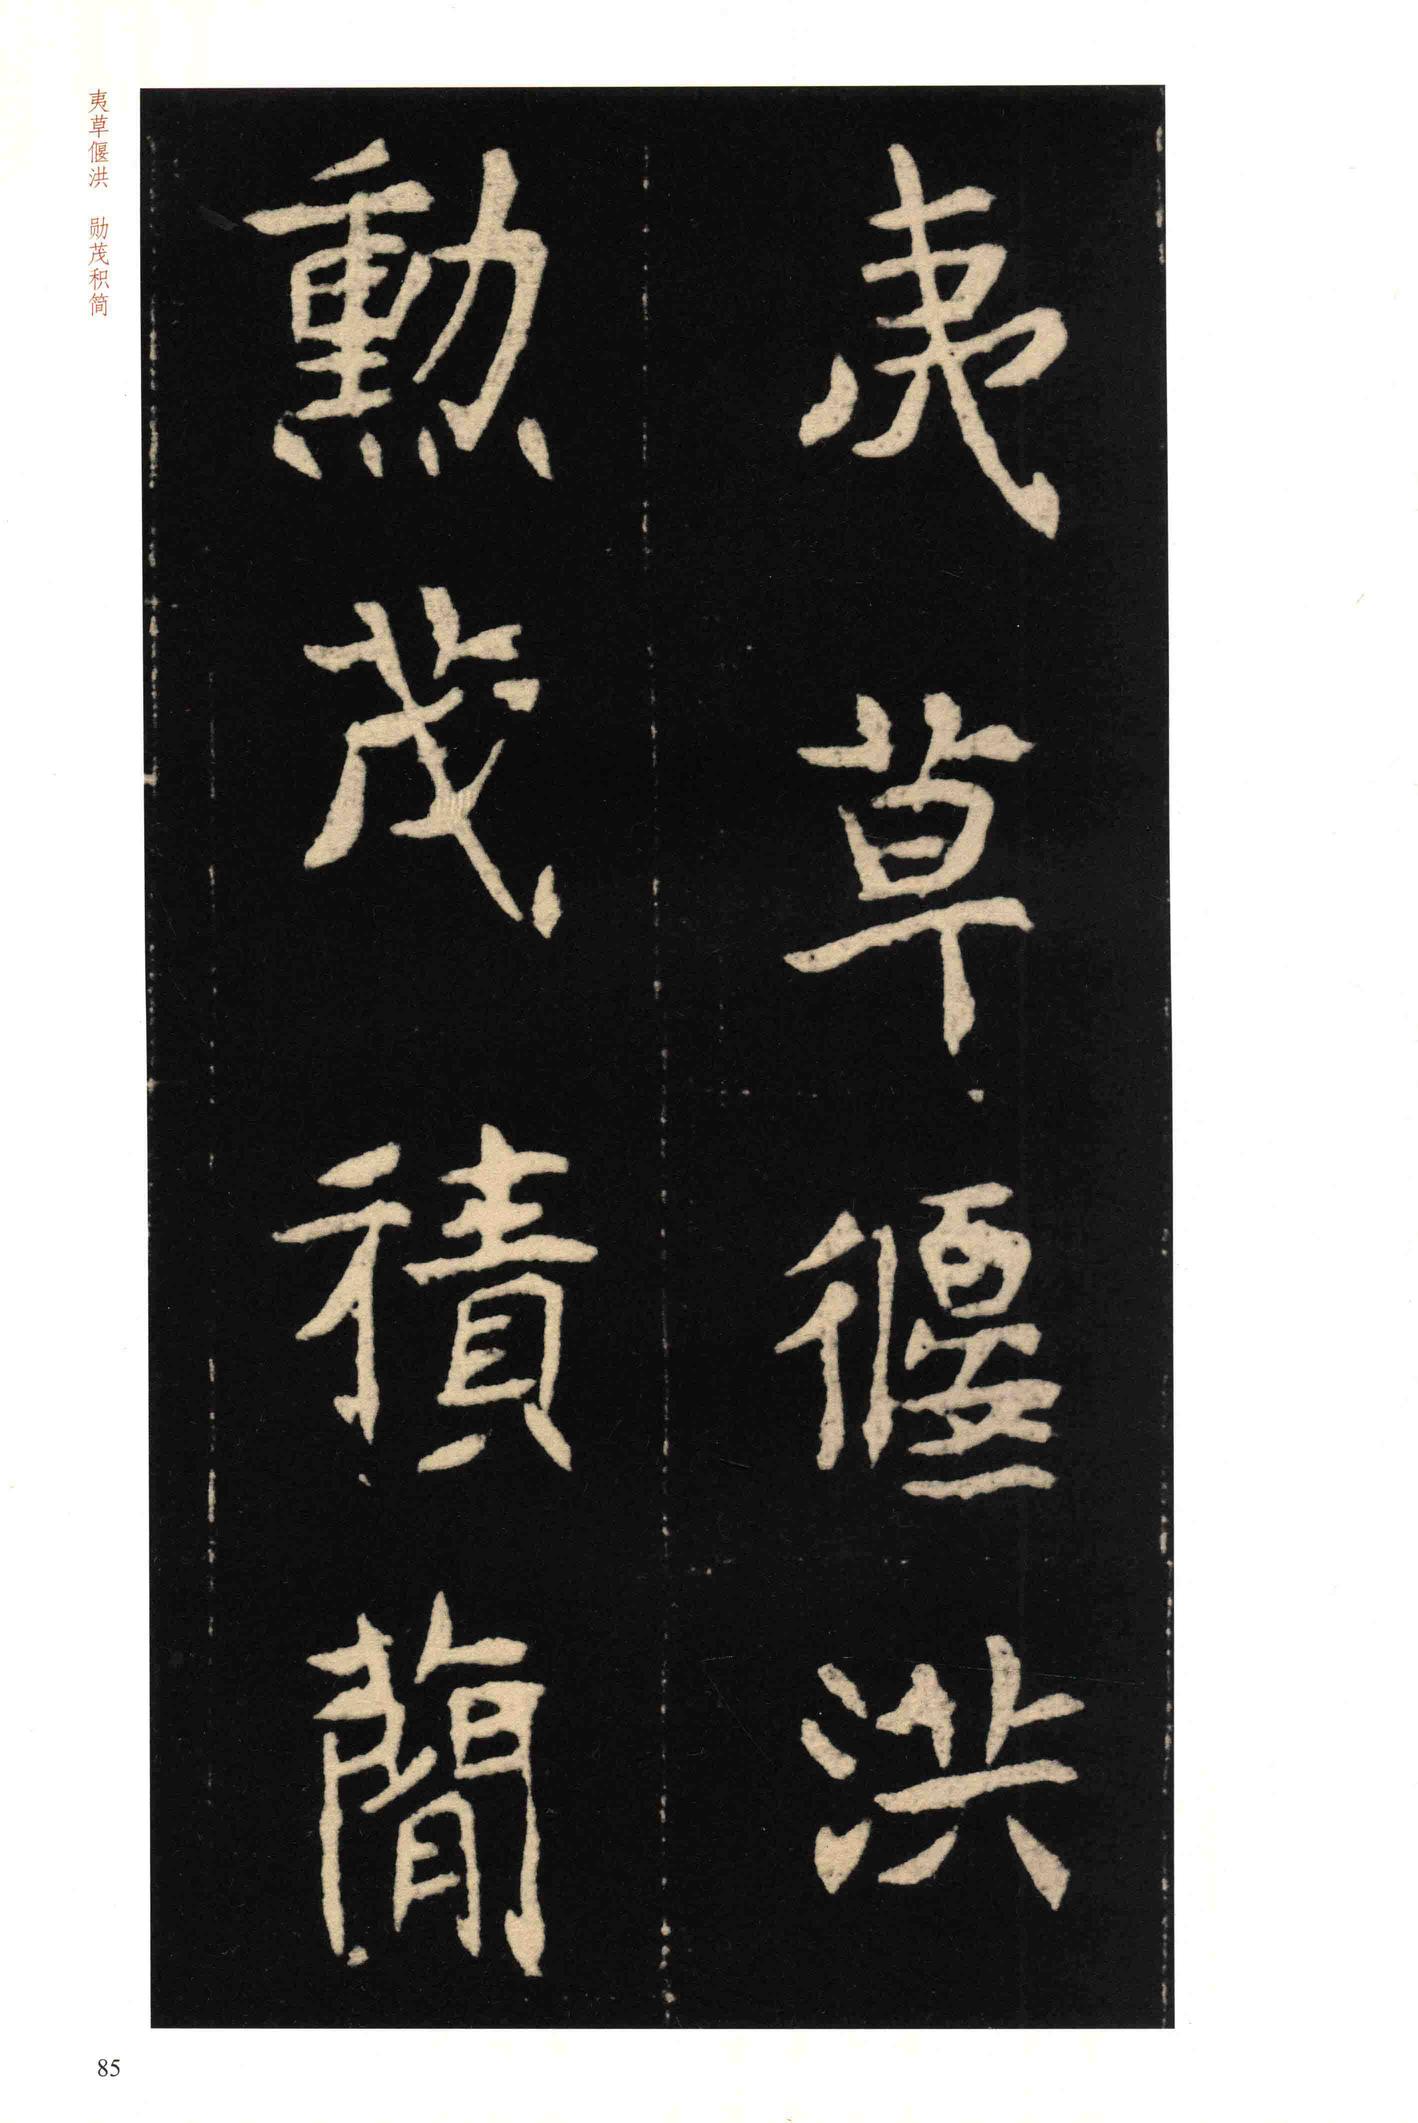 夷草偃洪
勳茂積蕳
夷草偃洪 勋茂积简
85